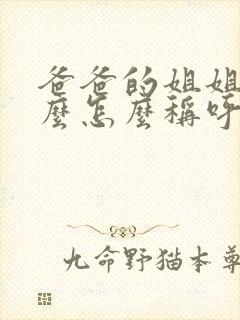 爸爸的姐姐
麼怎麼稱呼
九命野猫本尊